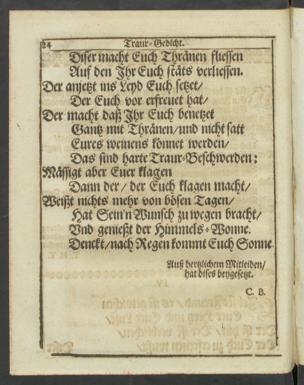 24 Traur-Gedicht.
Diser macht Euch Thränen fliessen
Auf den Ihr Euch stäts verliessen.
Der anjetzt ins Leyd Euch setzet/
Der Euch vor erfreuet hat/
Der macht daß Ihr Euch benetzet
Gantz mit Thränen/und nicht satt
Eures weinens könnet werden/
Das sind harte Traur-Beschwerden:
Mässigt aber Euer klagen
Dann der/ der Euch klagen macht/
Weißt nichts mehr von bösen Tagen/
Hat Sein'n Wunsch zu wegen bracht/
Und genießt der Himmels-Wonne.
Denckt/nach Regen kommt Euch Sonne
Auß hertzlichem Mitleiden/
hat dises beygesetzt.
C. B.